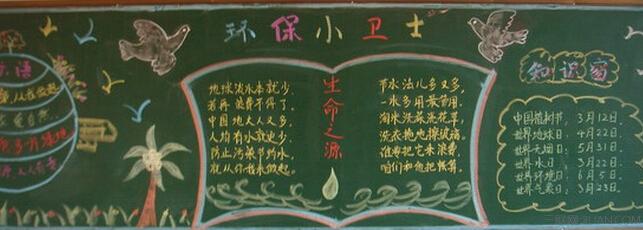 环保小卫士
语
从我做起
地球淡水本就少,
若再浪费不得了。
中国地大人又多,
人均有水就更少。
防止污染节约水,
就从你我来做起。
生命之源
节水法儿多又多,
一水多用最管用。
淘水洗菜浇花草,
洗衣拖地擦玻璃。
谁要把它来浪费,
咱们和他把帐算。
知识窗
中国植树节:3月12日.
世界地球日:4月22日.
世界无烟日:5月31日.
世界水日:3月22日.
世界环境日:6月5日.
世界气象日:3月23日.
三联网 3LIAN.COM